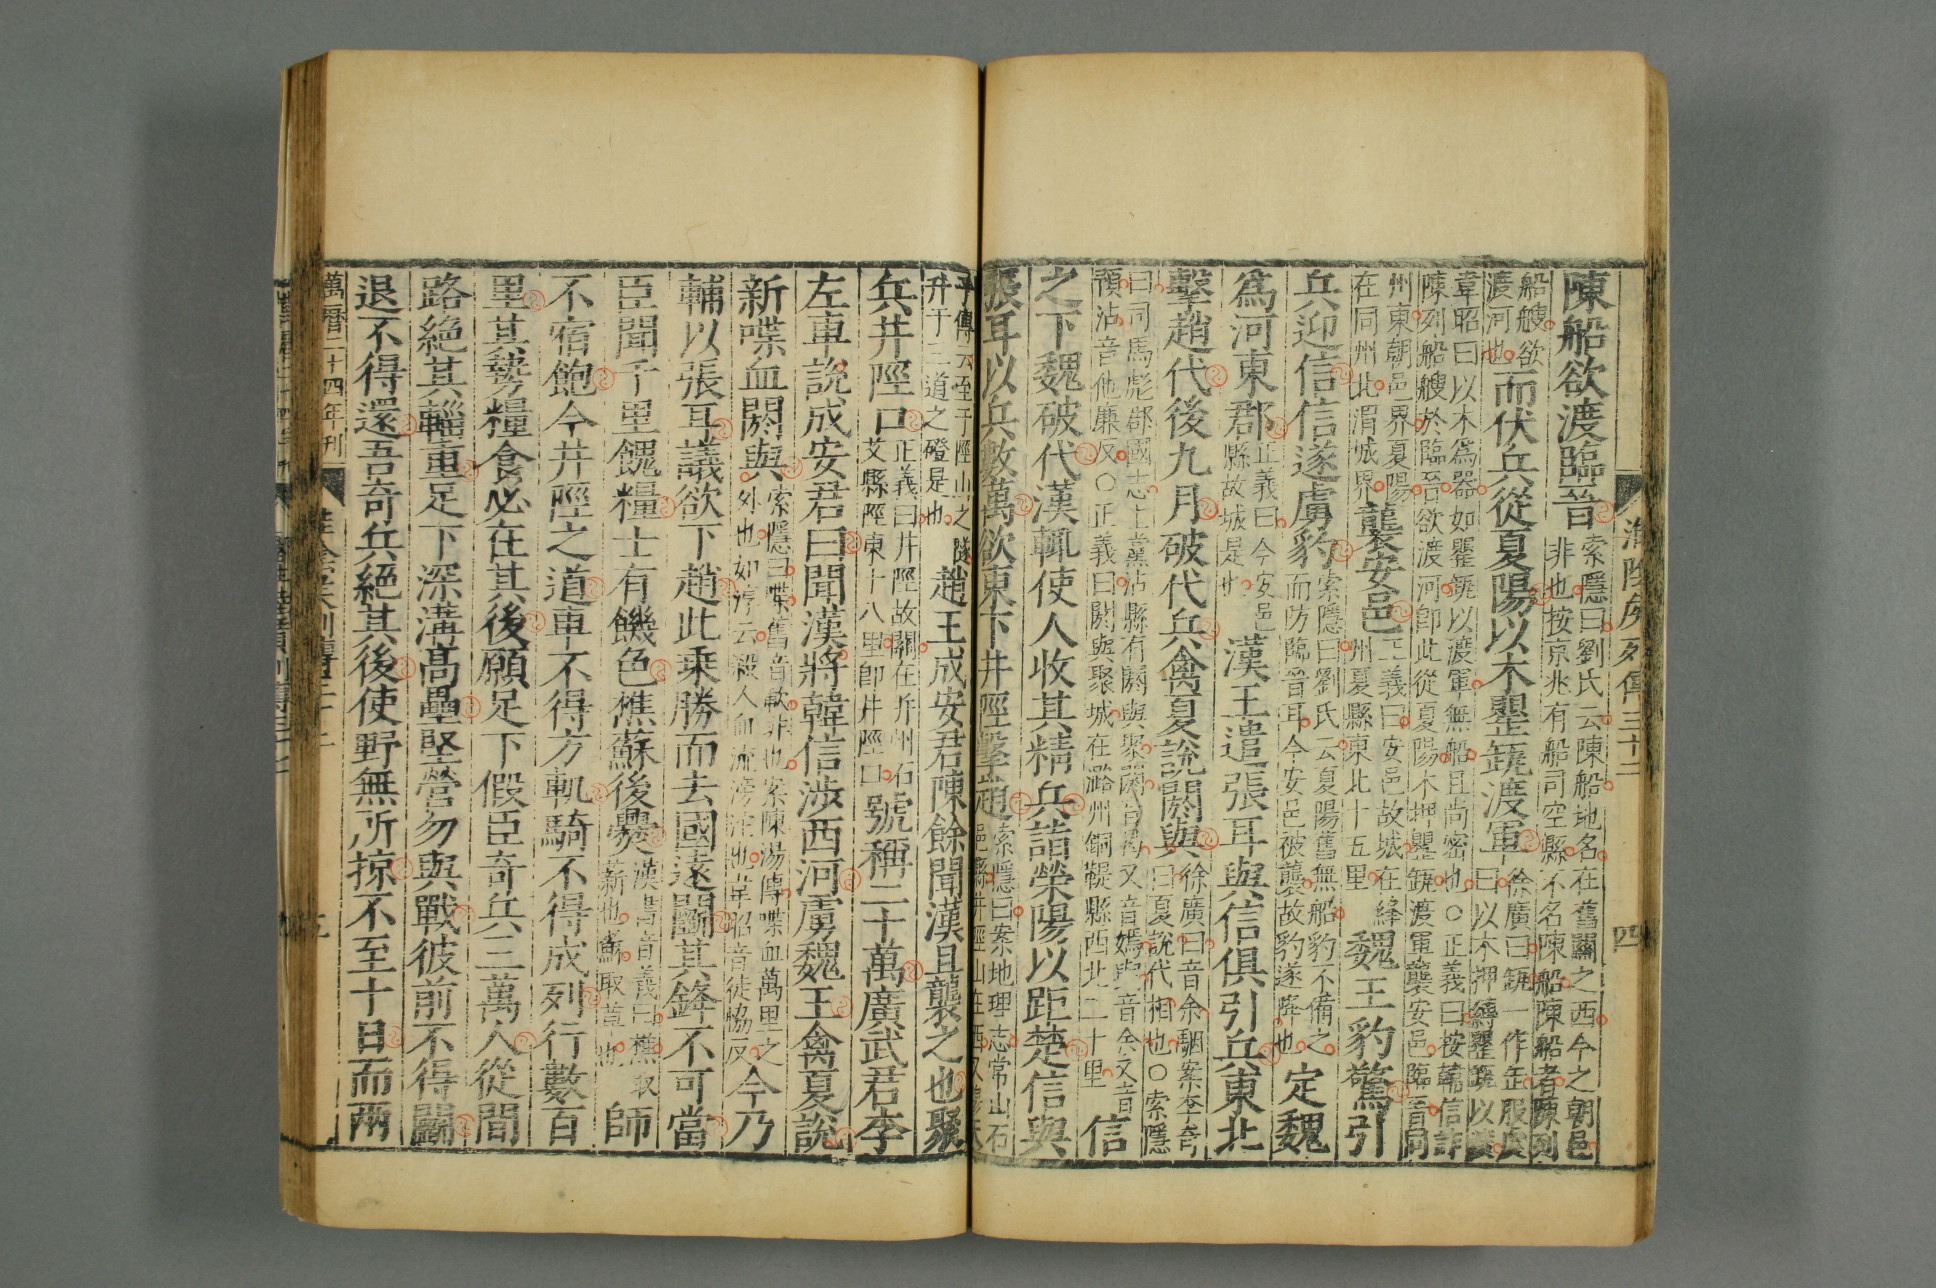 淮陰矦列傳三十二
四
陳船欲渡臨晉索隱曰劉氏云陳船地名在舊關之西今之朝邑
非也按京兆有船司空縣不名陳船陳船者陳列
船艘欲
渡河也而伏兵從夏陽以木罌缻渡軍徐廣曰缻一作缶服虔
曰以木押縛罌缻以渡
韋昭曰以木爲器如罌缻以渡軍無船且尚密也○正義曰按韓信詐
陳列船艘於臨晉欲渡河卽此從夏陽木押罌缻渡軍襲安邑臨晉同
州東朝邑界夏陽
在同州北渭城界襲安邑正義曰安邑故城在絳
州夏縣東北十五里魏王豹驚引
兵迎信信遂虜豹索隱曰劉氏云夏陽舊無船豹不備之
而防臨晉耳今安邑被襲故豹遂降也定魏
爲河東郡正義曰今安邑
縣故城是也漢王遣張耳與信俱引兵東北
擊趙代後九月破代兵禽夏說閼與徐廣曰音余駰案李奇
曰夏說代相也○索隱
曰司馬彪郡國志上黨沾縣有閼與聚閼音曷又音嫣與音余又音
預沾音他廉反○正義曰閼與聚城在潞州銅鞮縣西北二十里信
之下魏破代漢輒使人收其精兵詣滎陽以距楚信與
張耳以兵數萬欲東下井陘擊趙索隱曰案地理志常山石
邑縣井陘山在西又穆天
子傳云至于陘山之隊
升于三道之磴是也趙王成安君陳餘聞漢且襲之也聚
兵井陘口正義曰井陘故關在并州石
艾縣陘東十八里卽井陘口號稱二十萬廣武君李
左車說成安君曰聞漢將韓信涉西河虜魏王禽夏說
新喋血閼與索隱曰喋舊音歃非也案陳湯傳喋血萬里之
外也如淳云殺人血流滂沱也韋昭音徒協反今乃
輔以張耳議欲下趙此乗勝而去國遠鬭其鋒不可當
臣聞千里餽糧士有饑色樵蘇後爨漢書音義曰樵取
薪也蘇取草也師
不宿飽今井陘之道車不得方軌騎不得成列行數百
里其勢糧食必在其後願足下假臣奇兵三萬人從間
路絶其輜重足下深溝高壘堅營勿與戰彼前不得鬭
退不得還吾奇兵絶其後使野無所掠不至十日而兩
萬曆二十四年刊